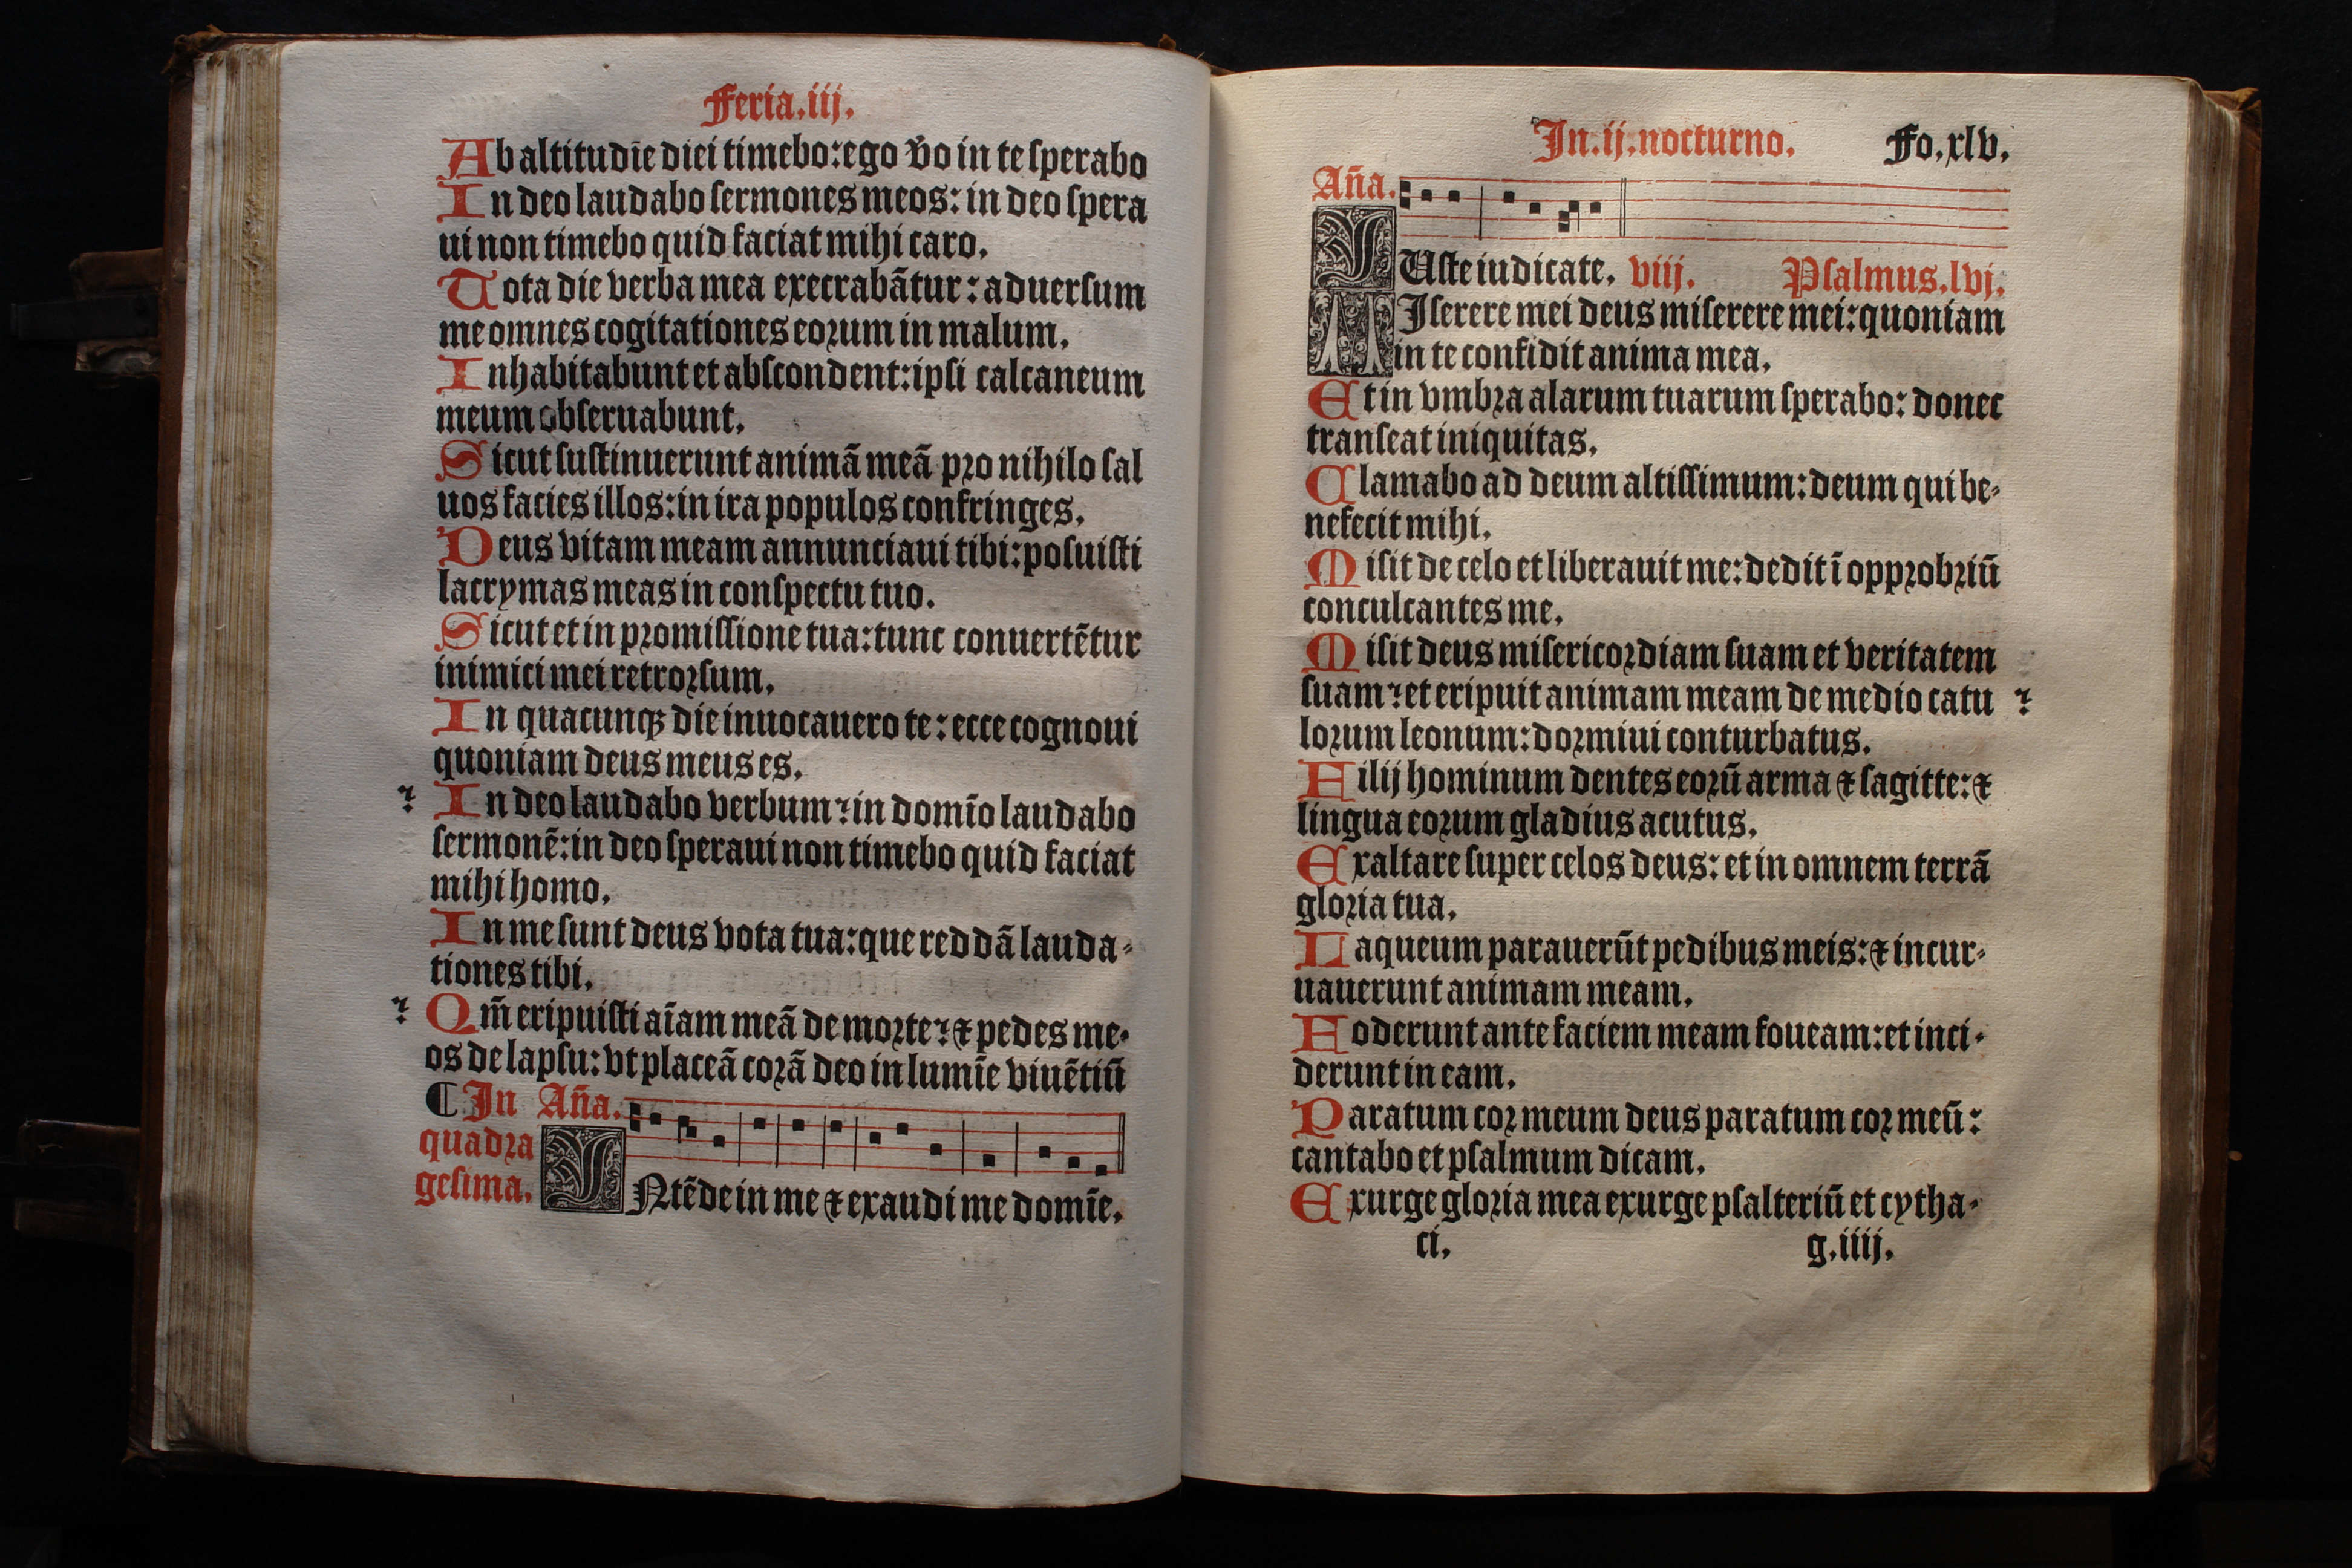 Feria.iij.
Ab altitudīe diei timebo: ego v̄o in te sperabo
In deo laudabo sermones meos: in deo spera
ui non timebo quid faciat mihi caro.
Tota die verba mea execrabātur: aduersum
me omnes cogitationes eorum in malum.
Inhabitabunt et abscondent: ipsi calcaneum
meum obseruabunt.
Sicut sustinuerunt animā meā pro nihilo sal
uos facies illos: in ira populos confringes.
Deus vitam meam annunciaui tibi: posuisti
lacrymas meas in conspectu tuo.
Sicut et in promissione tua: tunc conuertētur
inimici mei retrorsum.
In quacunqꝫ die inuocauero te: ecce cognoui
quoniam deus meus es.
In deo laudabo verbum? in domīo laudabo
sermonē: in deo speraui non timebo quid faciat
mihi homo.
In me sunt deus vota tua: que reddā lauda-
tiones tibi.
Qm̄ eripuisti aīam meā de morte? ⁊ pedes me-
os de lapsu: vt placeā corā deo in lumīe viuētiū
¶ In Aña.
quadra
gesima.
INtēde in me ⁊ exaudi me domīe.
In.ij.nocturno. Fo.xlv.
Aña.
IUste iudicate. viij. Psalmus.lvj.
MIserere mei deus miserere mei: quoniam
in te confidit anima mea.
Et in vmbra alarum tuarum sperabo: donec
transeat iniquitas.
Clamabo ad deum altissimum: deum qui be-
nefecit mihi.
Misit de celo et liberauit me: dedit ī opprobriū
conculcantes me.
Misit deus misericordiam suam et veritatem
suam? et eripuit animam meam de medio catu ?
lorum leonum: dormiui conturbatus.
Filij hominum dentes eorū arma ⁊ sagitte: ⁊
lingua eorum gladius acutus.
Exaltare super celos deus: et in omnem terrā
gloria tua.
Laqueum parauerūt pedibus meis: ⁊ incur-
uauerunt animam meam.
Foderunt ante faciem meam foueam: et inci-
derunt in eam.
Paratum cor meum deus paratum cor meū:
cantabo et psalmum dicam.
Exurge gloria mea exurge psalteriū et cytha-
ci. g.iiij.